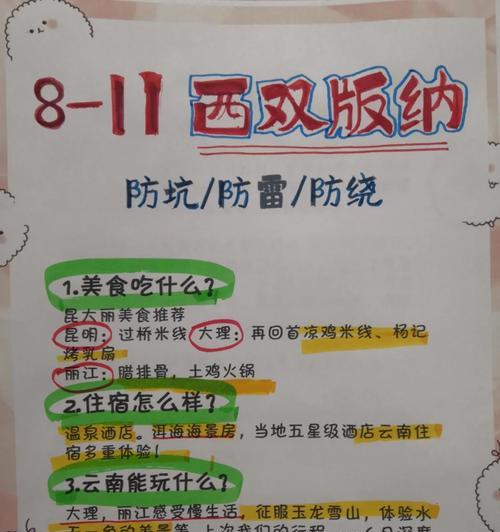 8-11 西双版纳
防坑/防雷/防绕
1.美食吃什么?
昆大丽美食推荐
昆明:过桥米线 大理:再回首凉鸡米线、杨记
烤乳扇
丽江:腊排骨,土鸡火锅
2.住宿怎么样?
温泉酒店。洱海海景房,当地五星级酒店云南住
宿多重体验!
3.云南能玩什么?
大理,丽江感受慢生活,征服玉龙雪山,体验水
天一色的美景等,上次我们的行程